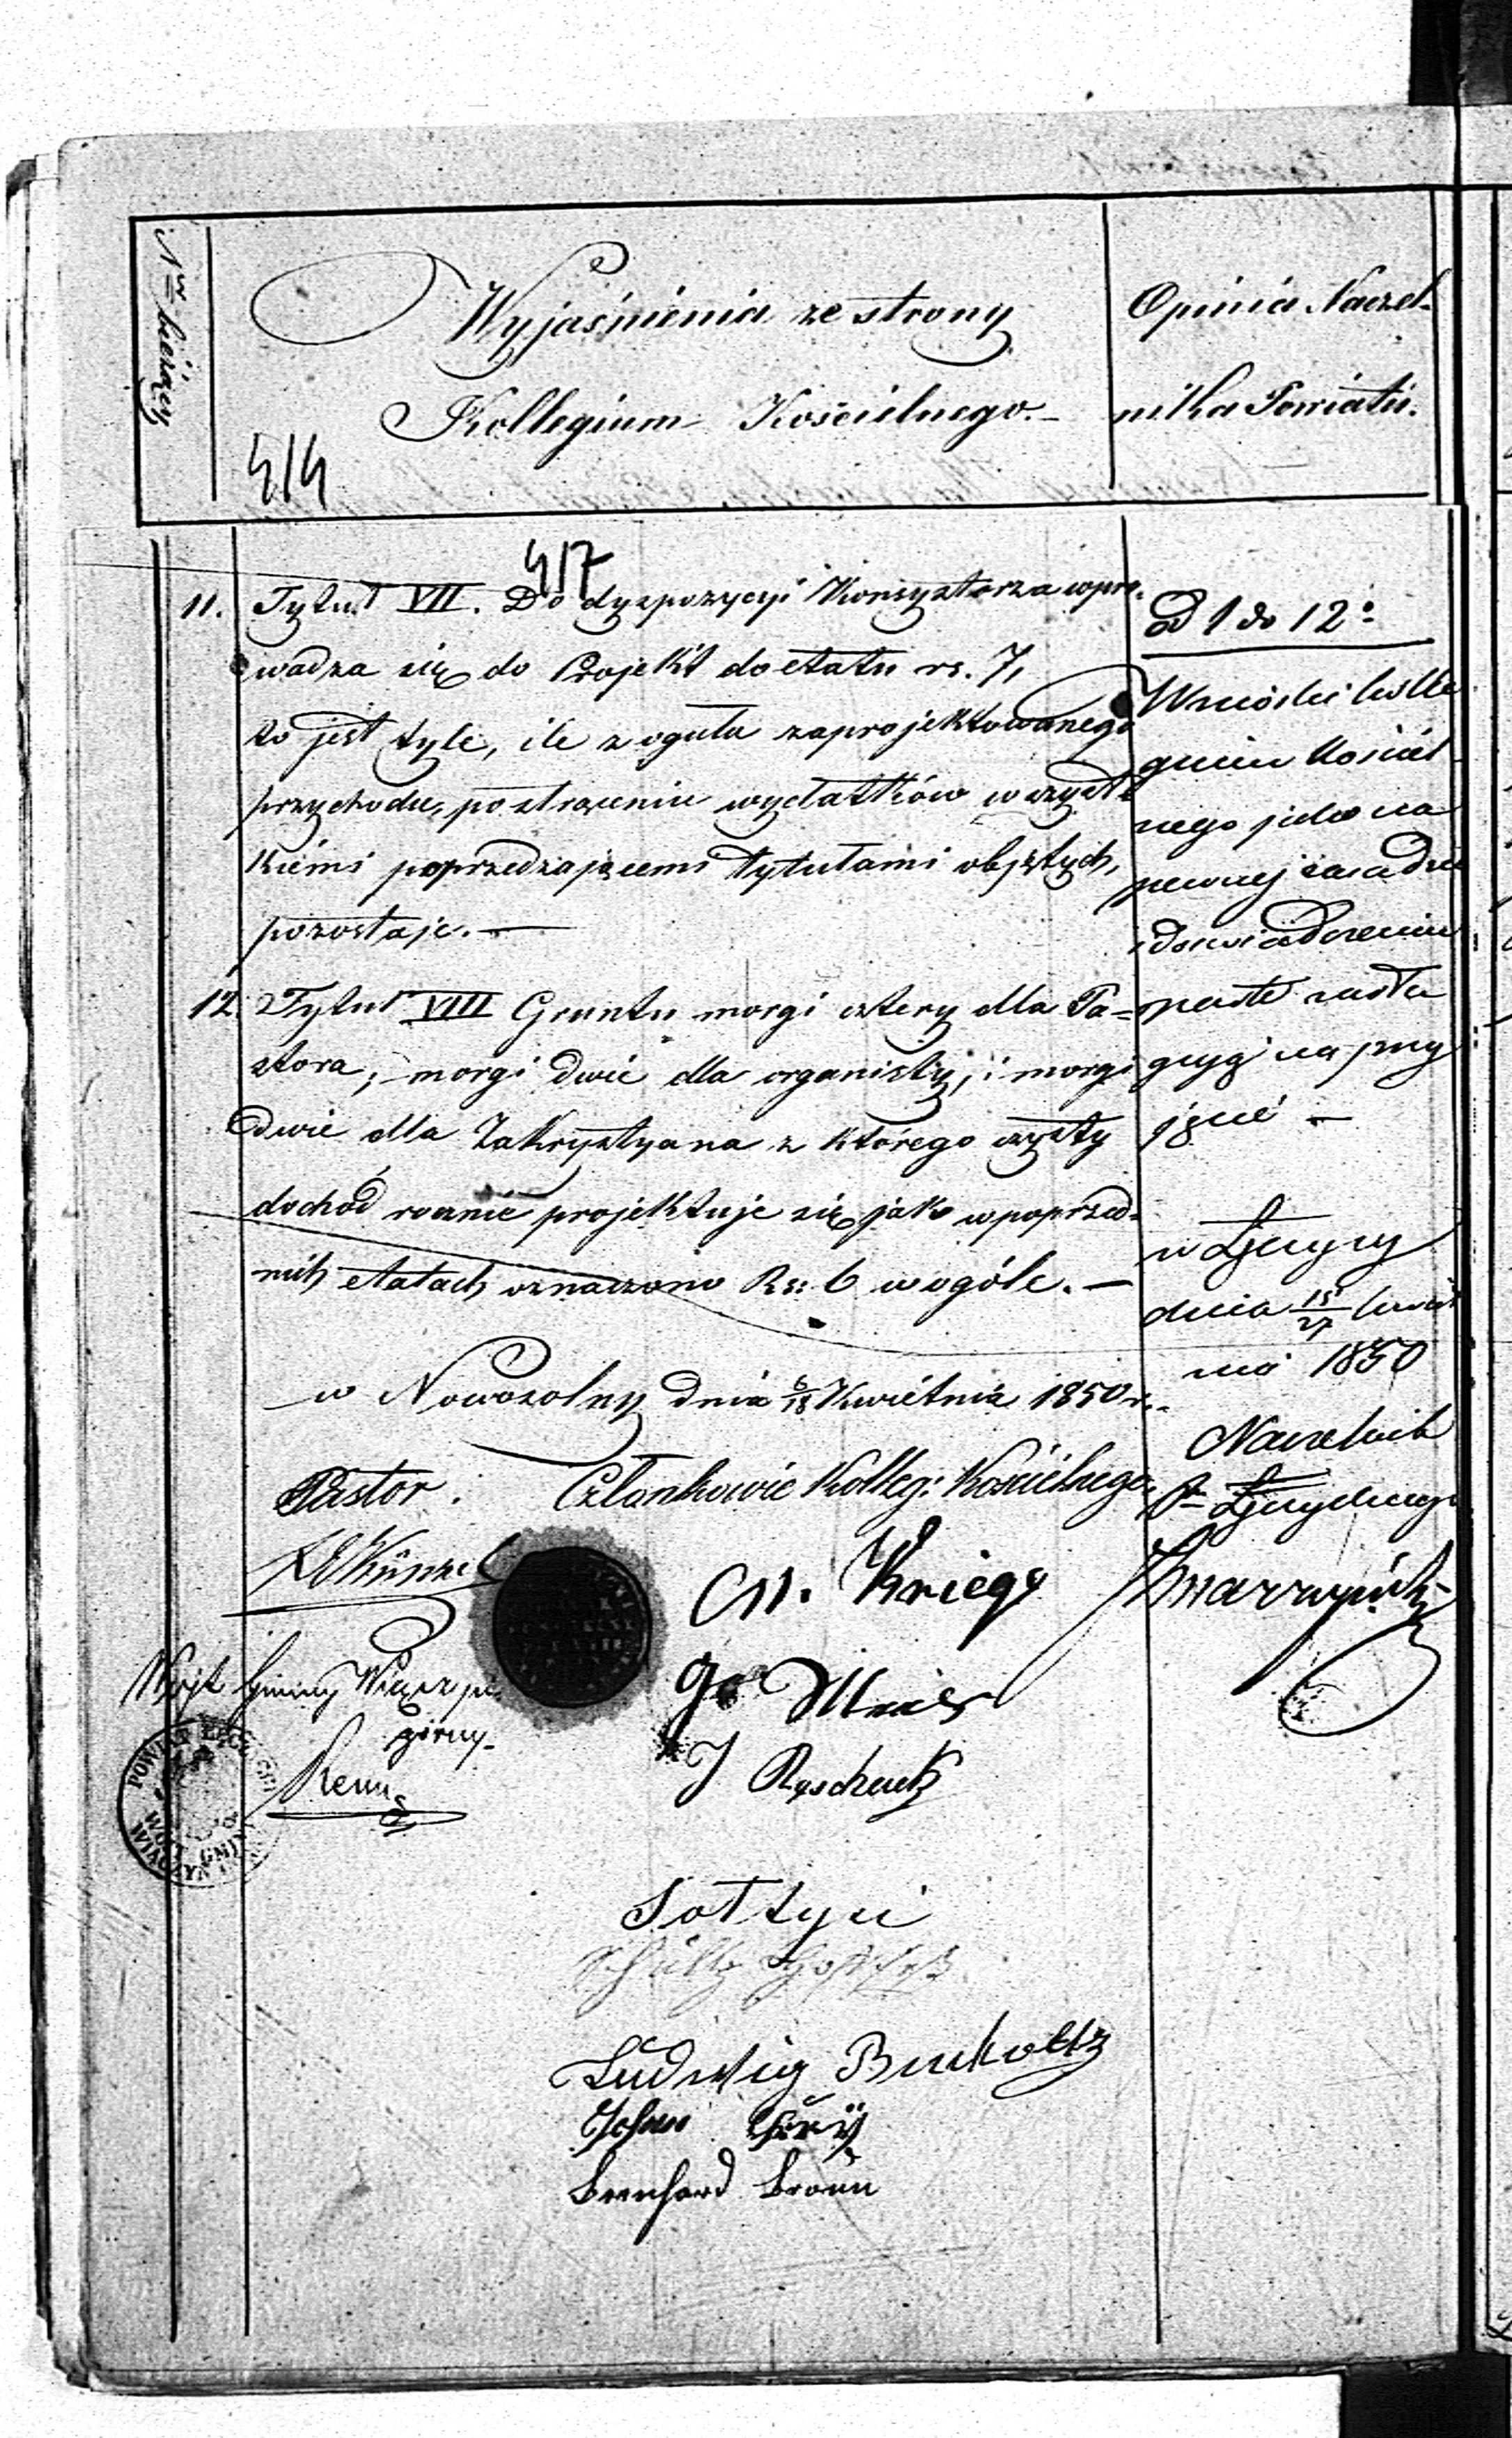 Nr bieżący
Wyjaśnienia ze strony
Kollegium Kościelnego.-
414
Opinia Naczel-
nika Powiatu.
417
11. Tytuł VII. Do dyspozycyi Konsystorza wpro-
wadza się do Projekt do etatu rs. 7,
to jest tyle, ile z ogułu zaprojektowanego
przychodu, po strąceniu wydatków wszyst-
kiemi poprzedzającemi tytułami objętych,
pozostaje. —
12. Tytuł VIII Gruntu morgi cztery dla Pa=
stora, morgi dwie dla organisty, i morgi
dwie dla Zakrystyana z którego czysty
dochód rocznie projektuje się jako w poprzed-
nich etatach oznaczono Rs: 6 w ogóle. —
w Nowosolny dnia 6/18 Kwietnia 1850 r.
Pastor.
Członkowie Kolleg: Kościelnego
M. Kriege
J
Wójt Gminy Wiączyń
górny.
POWIAT
WÓJT GMINY
WIĄCZYŃ
Sołtysi
Schultz
Ludwig Buckoltz
Johan
Bernhard Braun
od 1 do 12:
Wnioski Kolle
gium Kościel
nego jako na
pewnej zasadzie
i doswiadczeniu
oparte zasłu
gują na przy
jęcie —
w Łęczycy
dnia 15/27 kwiet
nia 1850
Naczelnik
Ptu Łęczyckiego